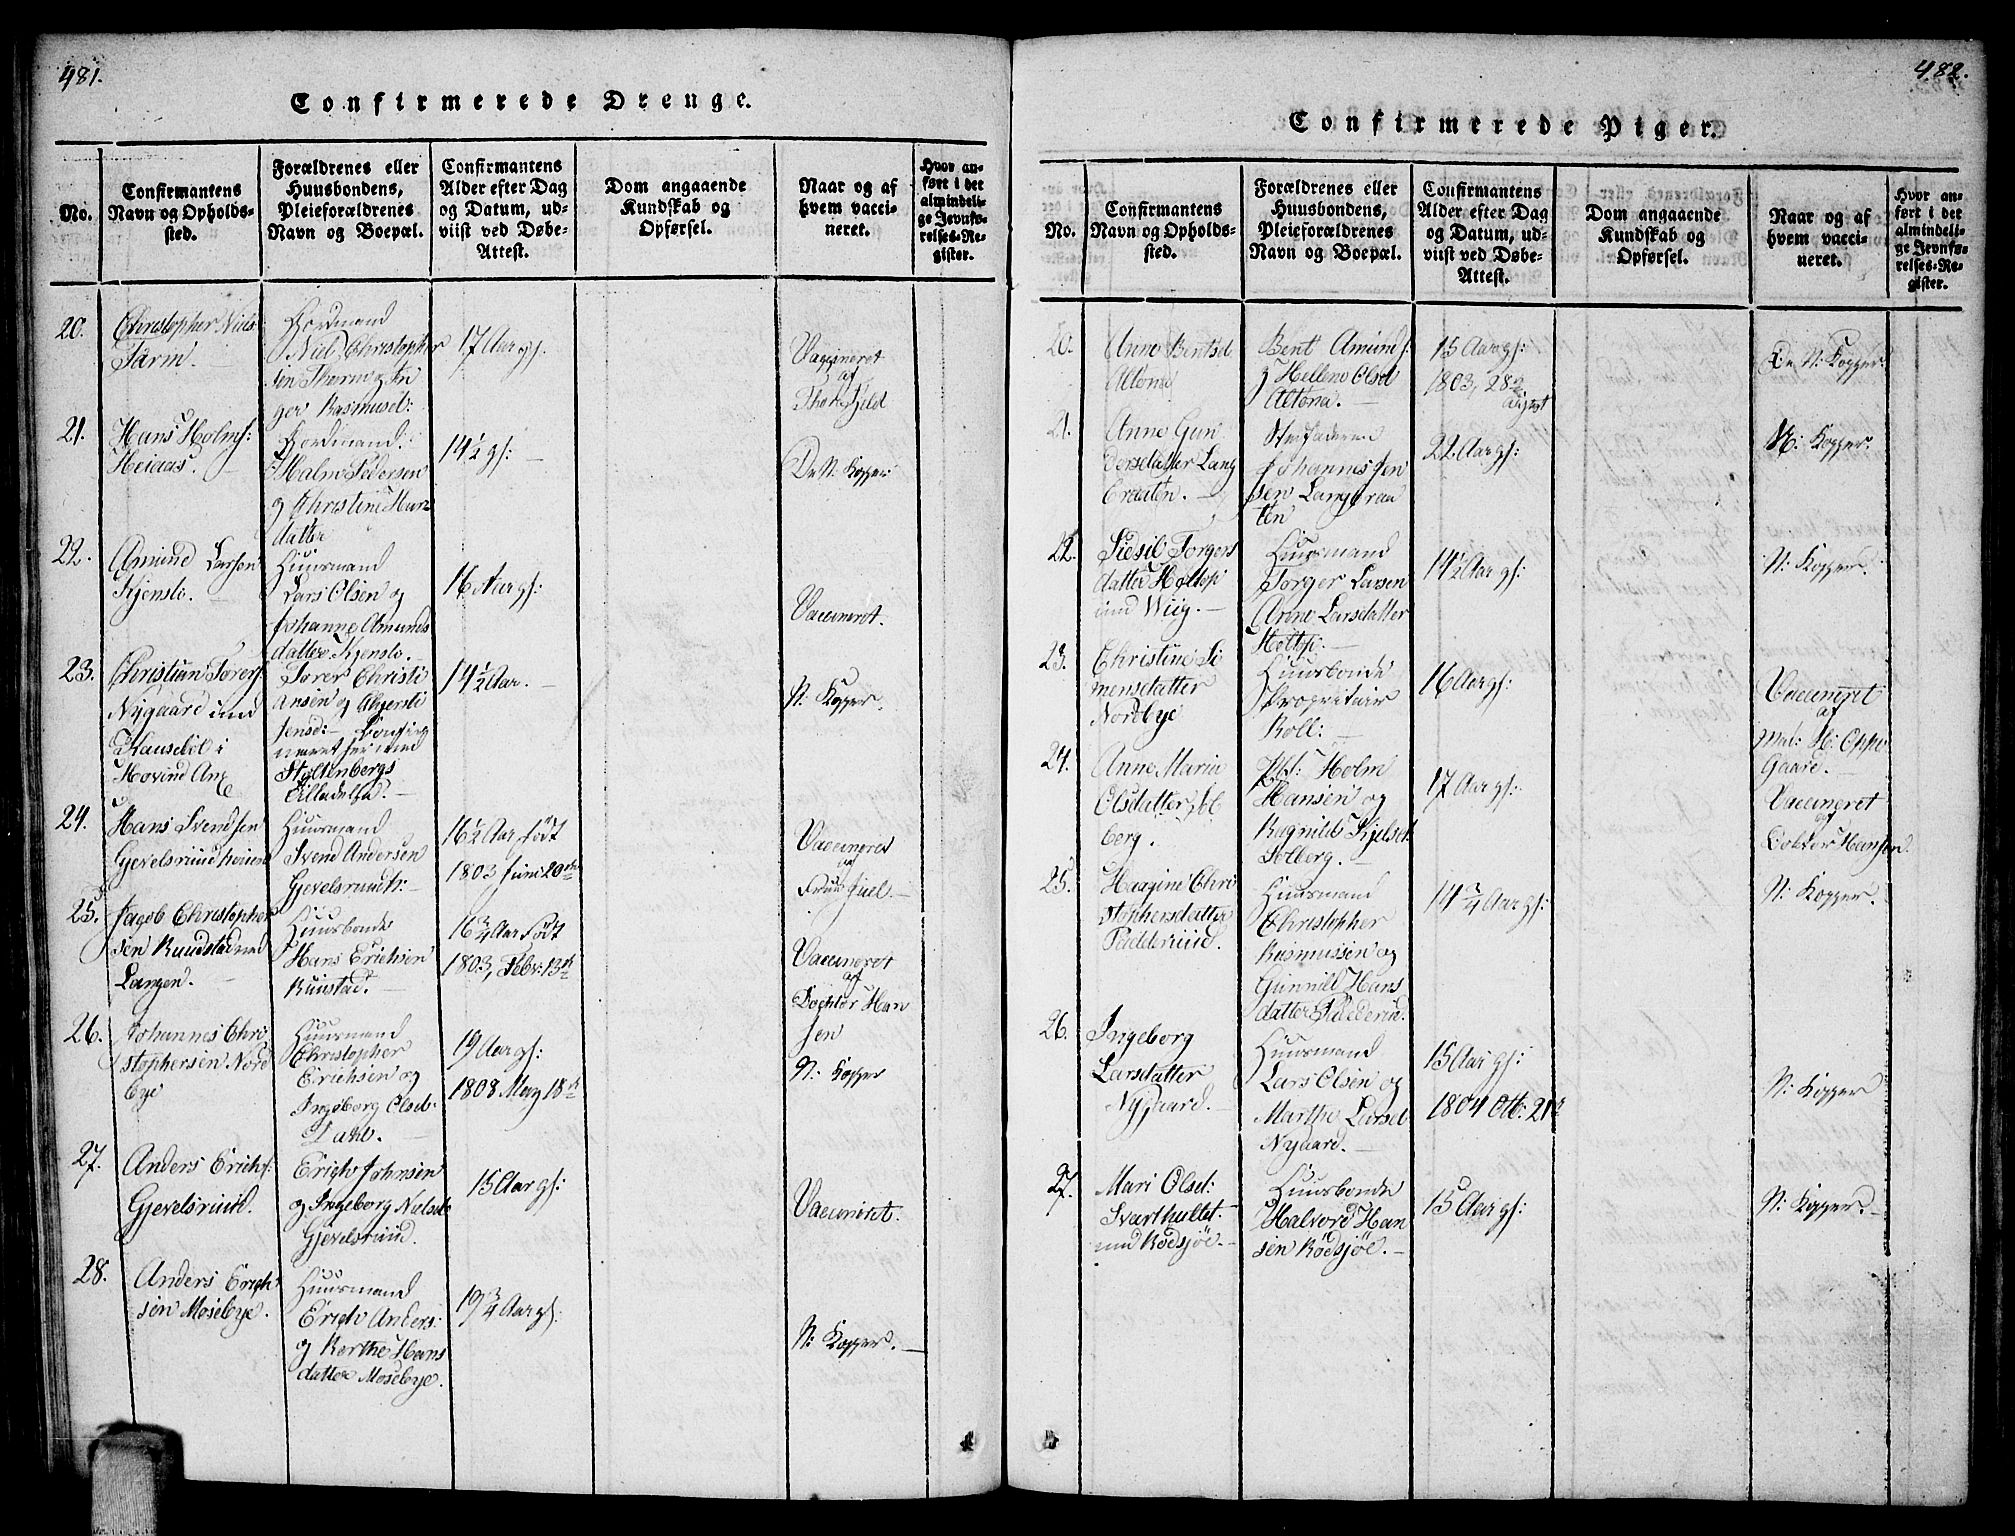 481.
Confirmerede Drenge.
No.
Confirmantens Navn og Opholds-sted.
Forældrenes eller Huusbondens, Pleieforældrenes Navn og Boepæl.
Confirmantens Alder efter Dag og Datum, ud-viist ved Døbe-Attest.
Dom angaaende Kundskab og Opførsel.
Naar og af hvem vacci-neret.
Hvor an-ført i det almindeli-ge Jevnfø-relses-Re-gister.
20.
Christopher Niels
Tarm.
Niels Christopher
sen Tharm og In
ger Rasmusd:
17 Aar gl.
Vaccineret
af
21.
Hans Holms:
Heiaas.
Holm Pedersen
og Christine Han
datter
14½ gl: —
De N: Kopper:
22.
Amund Larsen
Kjensli.
Huusmand
Lars Olsen og
Johanne Amunds
datter Kjensli. —
16 Aar gl:
Vaccineret.
23.
Christian Torers
Nygaard ind
i
Hovind An
Torer Christi
ansen og
Jensd: —
Stoltenbergs
14½ Aar. —
N: Kopper.
24.
Hans Svendsen
Gjevelsruud
Huusmand
Svend Andersen
Gjevelsruud: —
16½ Aar født
1803 Juni 20de
Vaccineret
af
Fru Juel. —
25.
Jacob Christopher
sen Ruudstad
Langen. —
Huusbonde
Hans Erichsen
Ruustad. —
16¾ Aar født
1803, Febr: 13de
Vaccineret
af
Docktor Han
sen
26.
Johannes Chri
stophersen Nord
bye
Huusmand
Christopher
Erichsen og
Ingeborg Olsd:
Dahl. —
19 Aar gl:
1808 May 18de
N: Kopper
27.
Anders Erichs:
Gjevelsruud.
Erich Johnsen
og Ingeborg Nielsd:
Gjevelsruud.
15 Aar gl:
Vaccineret.
28.
Anders Erich
sen Mosebye.
Huusmand
Erich Anders:
og Berthe Hans
datter Mosebye.
19¾ Aar gl:
N: Kopper. —
482.
Confirmerede Piger.
No.
Confirmantens Navn og Opholds-sted.
Forældrenes eller Huusbondens, Pleieforældrenes Navn og Boepæl.
Confirmantens Alder efter Dag og Datum, ud-viist ved Døbe-Attest.
Dom angaaende Kundskab og Opførsel.
Naar og af hvem vacci-neret.
Hvor an-ført i det almindeli-ge Jevnfø-relses-Re-gister.
20.
Anne Bentsd
Altona
Bent Amunds:
og Hellene Olsd
Altona. —
15 Aar gl:
1803, 28de
August
De N: Kopper:
21.
Anne Gun
dersdatter Lang
braaten. —
Stiffaderen
Johannes Jen
sen Langbraa
ten
22 Aar gl:
N: Kopper.
22.
Sidsil Torgers
datter Holtopi
ind Wiig. —
Huusmand
Torger Larsen
Anne Larsdatter
14½ Aar gl:
N: Kopper.
23.
Christine Si
mensdatter
Nordbye
Huusbonde
Proprietair
Roll: —
16 Aar gl:
Vaccineret
af
Mad: H: Oppe
gaard. —
24.
Anne Maria
Olsdatter Sol
berg.
Holm
Hansen og
Ragnild Kjelsd
Solberg. —
17 Aar gl:
Vaccineret
af
Doktor Hansen.
25.
Haagine Chri
stophersdatter
Padderuud.
Huusmand
Christopher
Rasmussen og
Gunnild Hans
datter Padderud.
14¾ Aar gl:
N: Kopper.
26.
Ingeborg
Larsdatter
Nygaard. —
Huusmand
Lars Olsen og
Marthe Larsd
Nygaard. —
15 Aar gl:
1804 Otb: 21de
N: Kopper
27.
Mari Olsd:
Svarthullet.
ind Rödsjöe. —
Huusbonde
Halvord Han
sen Rödsjöe. —
15 Aar gl:
N: Kopper. —